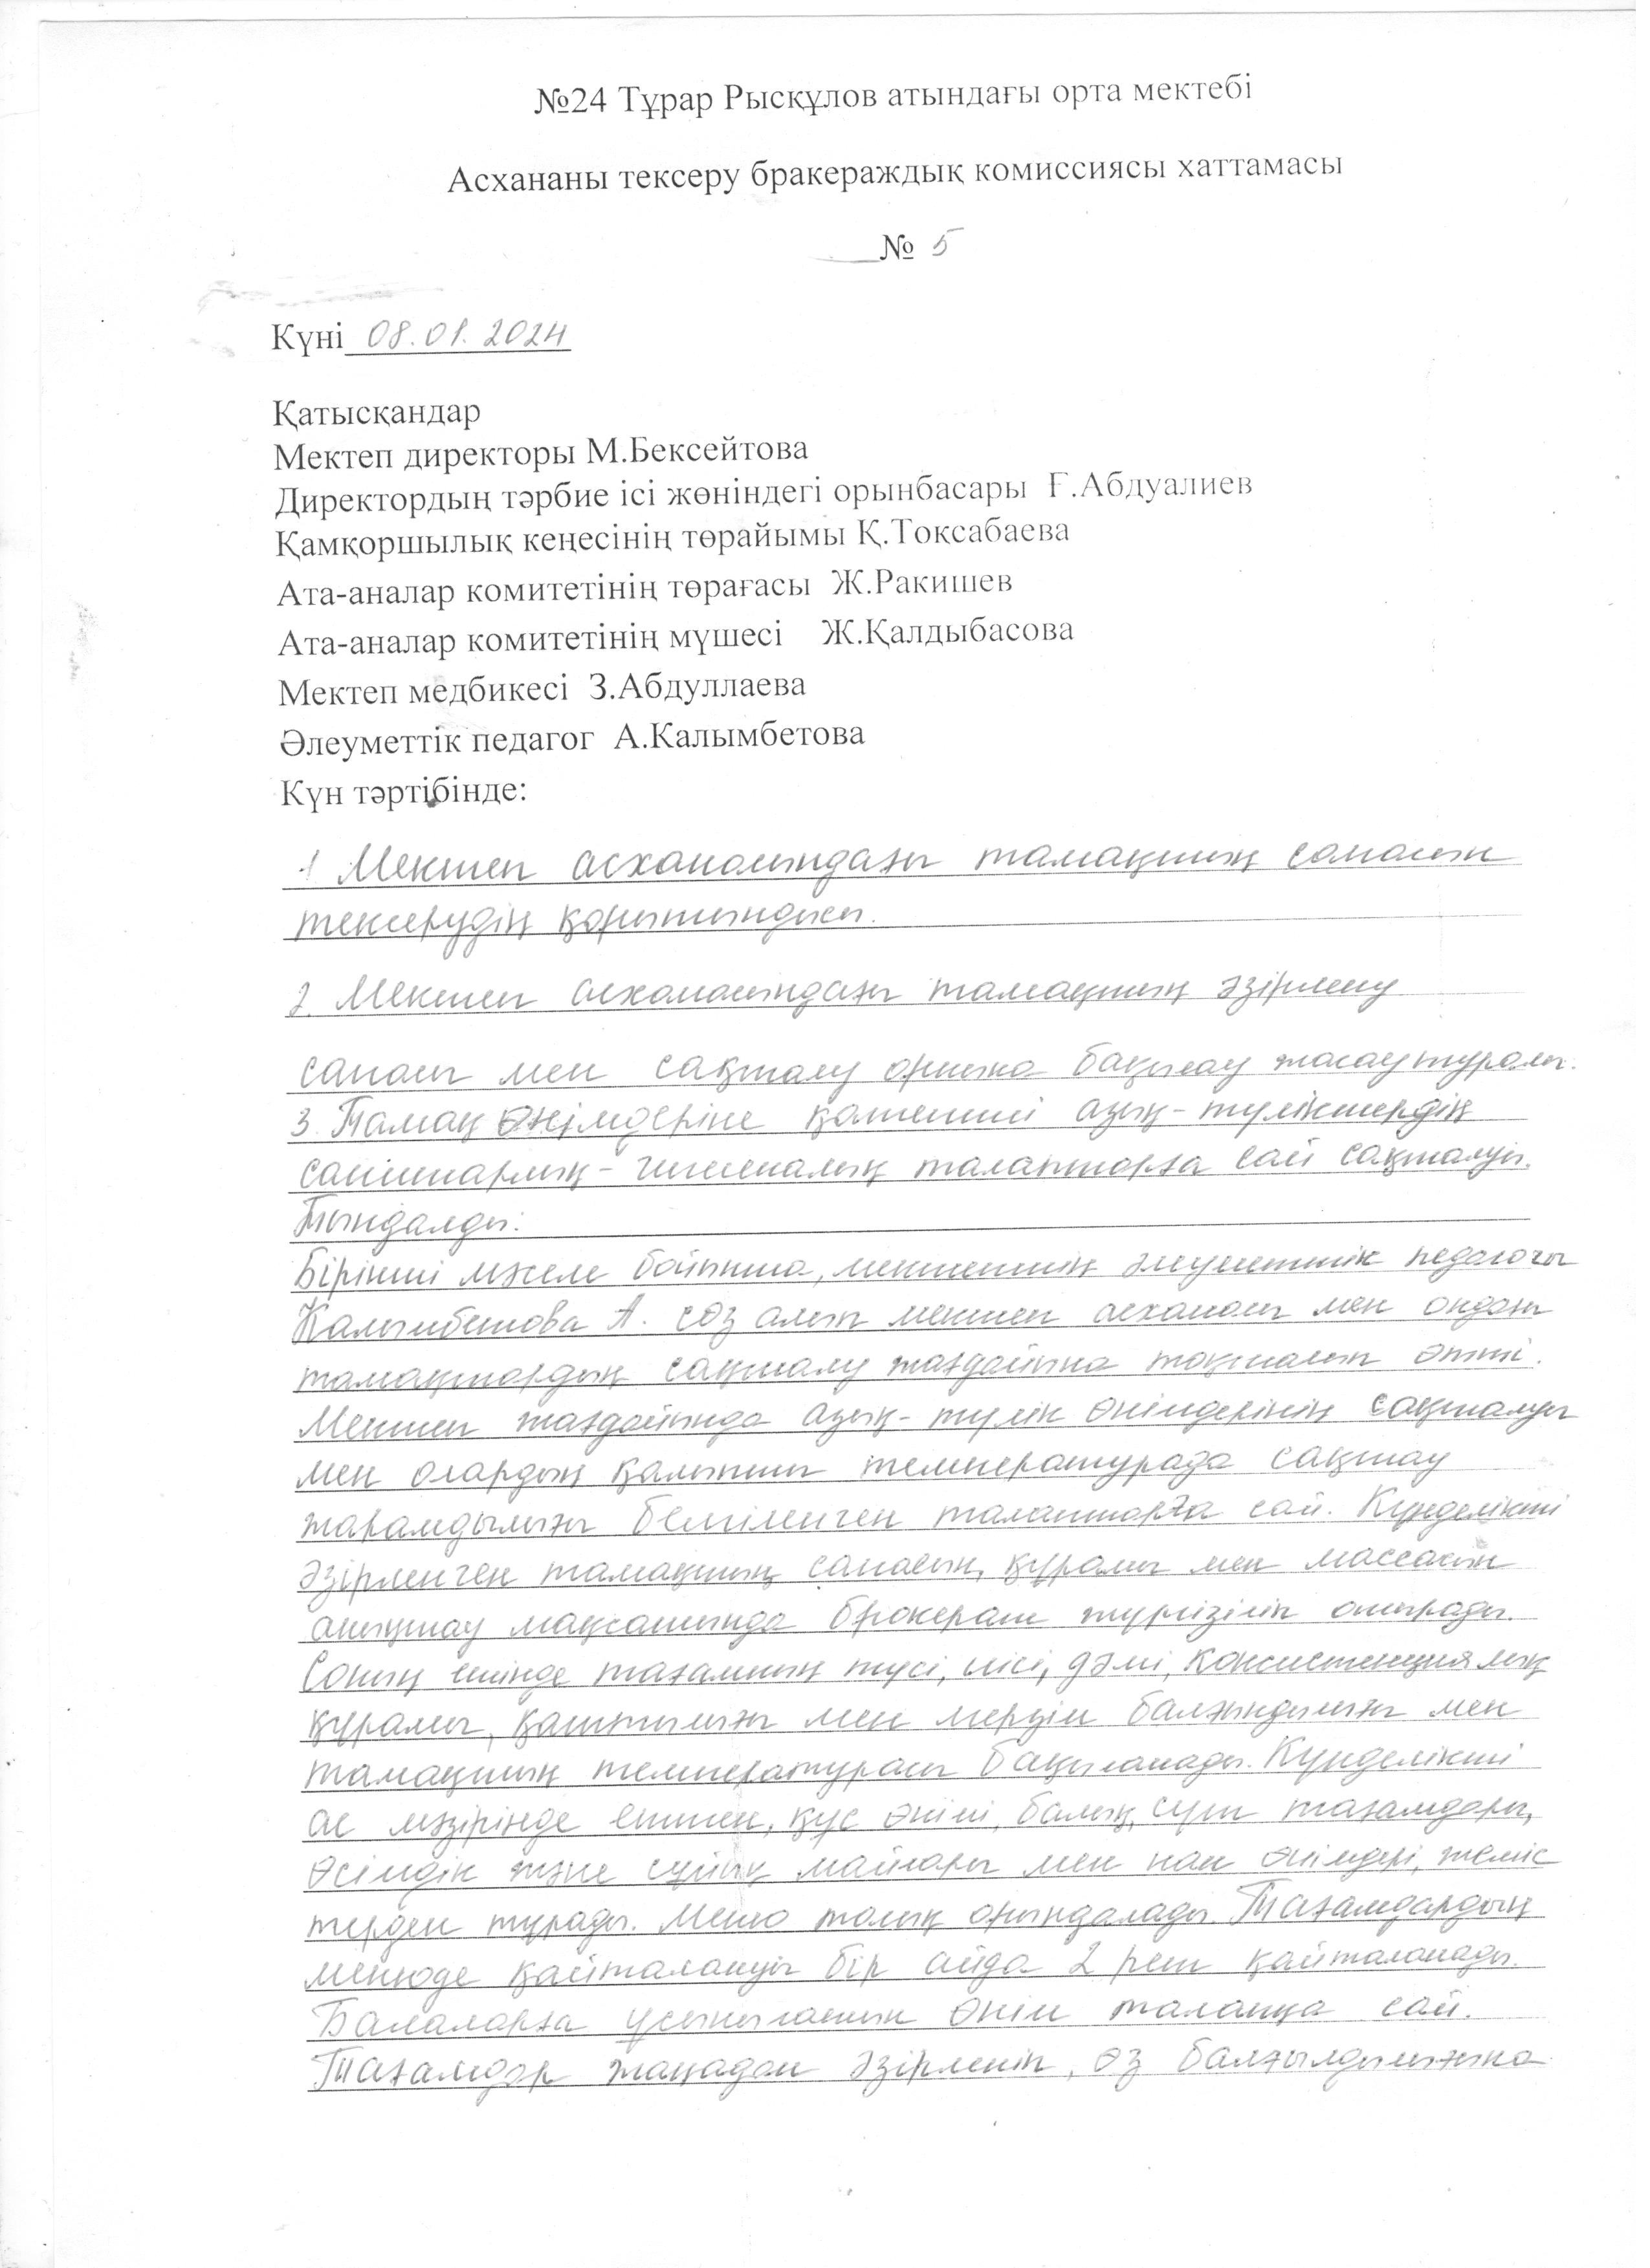 №24 Тұрар Рысқұлов атындағы орта мектебі
Асхананы тексеру бракераждық комиссиясы хаттамасы
№ 5
Күні 08.01.2024
Қатысқандар
Мектеп директоры М.Бексейтова
Директордың тәрбие ісі жөніндегі орынбасары Ғ.Абдуалиев
Қамқоршылық кеңесінің төрайымы Қ.Токсабаева
Ата-аналар комитетінің төрағасы Ж.Ракишев
Ата-аналар комитетінің мүшесі Ж.Қалдыбасова
Мектеп медбикесі З.Абдуллаева
Әлеуметтік педагог А.Калымбетова
Күн тәртібінде:
1 Мектеп асханасындағы тамақтың сапасын
тексерудің қорытындысы.
2. Мектеп асханасындағы тамақтың әзірлену
сапасы мен сақталу орнына бақылау жасау туралы.
3. Тамақ өнімдеріне қатысты азық-түліктердің
санитарлық-гигиеналық талаптарға сай сақталуы.
Тыңдалды:
Бірінші мәселе бойынша, мектептің әлеуметтік педагогы
Калымбетова А. сөз алып мектеп асханасы мен ондағы
тамақтардың сақталу жағдайына тоқталып өтті.
Мектеп жағдайында азық-түлік өнімдерінің сақталуы
мен олардың қалыпты температурада сақтау
жарамдылығы белгіленген талаптарға сай. Күнделікті
әзірленген тамақтың сапасын, құрамы мен массасын
анықтау мақсатында брокераж жүргізіліп отырады.
Соның ішінде тағамның түсі, иісі, дәмі, консистенциялық
құрамы, қаттылығы мен мерзім балғындылығы мен
тамақтың температурасы бақыланады. Күнделікті
ас мәзірінде еттен, құс өнімі, балық, сүт тағамдары,
өсімдік және сұйық майлары мен нан өнімдері, жеміс
терден тұрады. Меню толық орындалады. Тағамдардың
менюде қайталануы бір айда 2 рет қайталанады.
Балаларға ұсынылатын өнім талапқа сай.
Тағамдар жаңадан әзірленіп, өз балғылдылығына